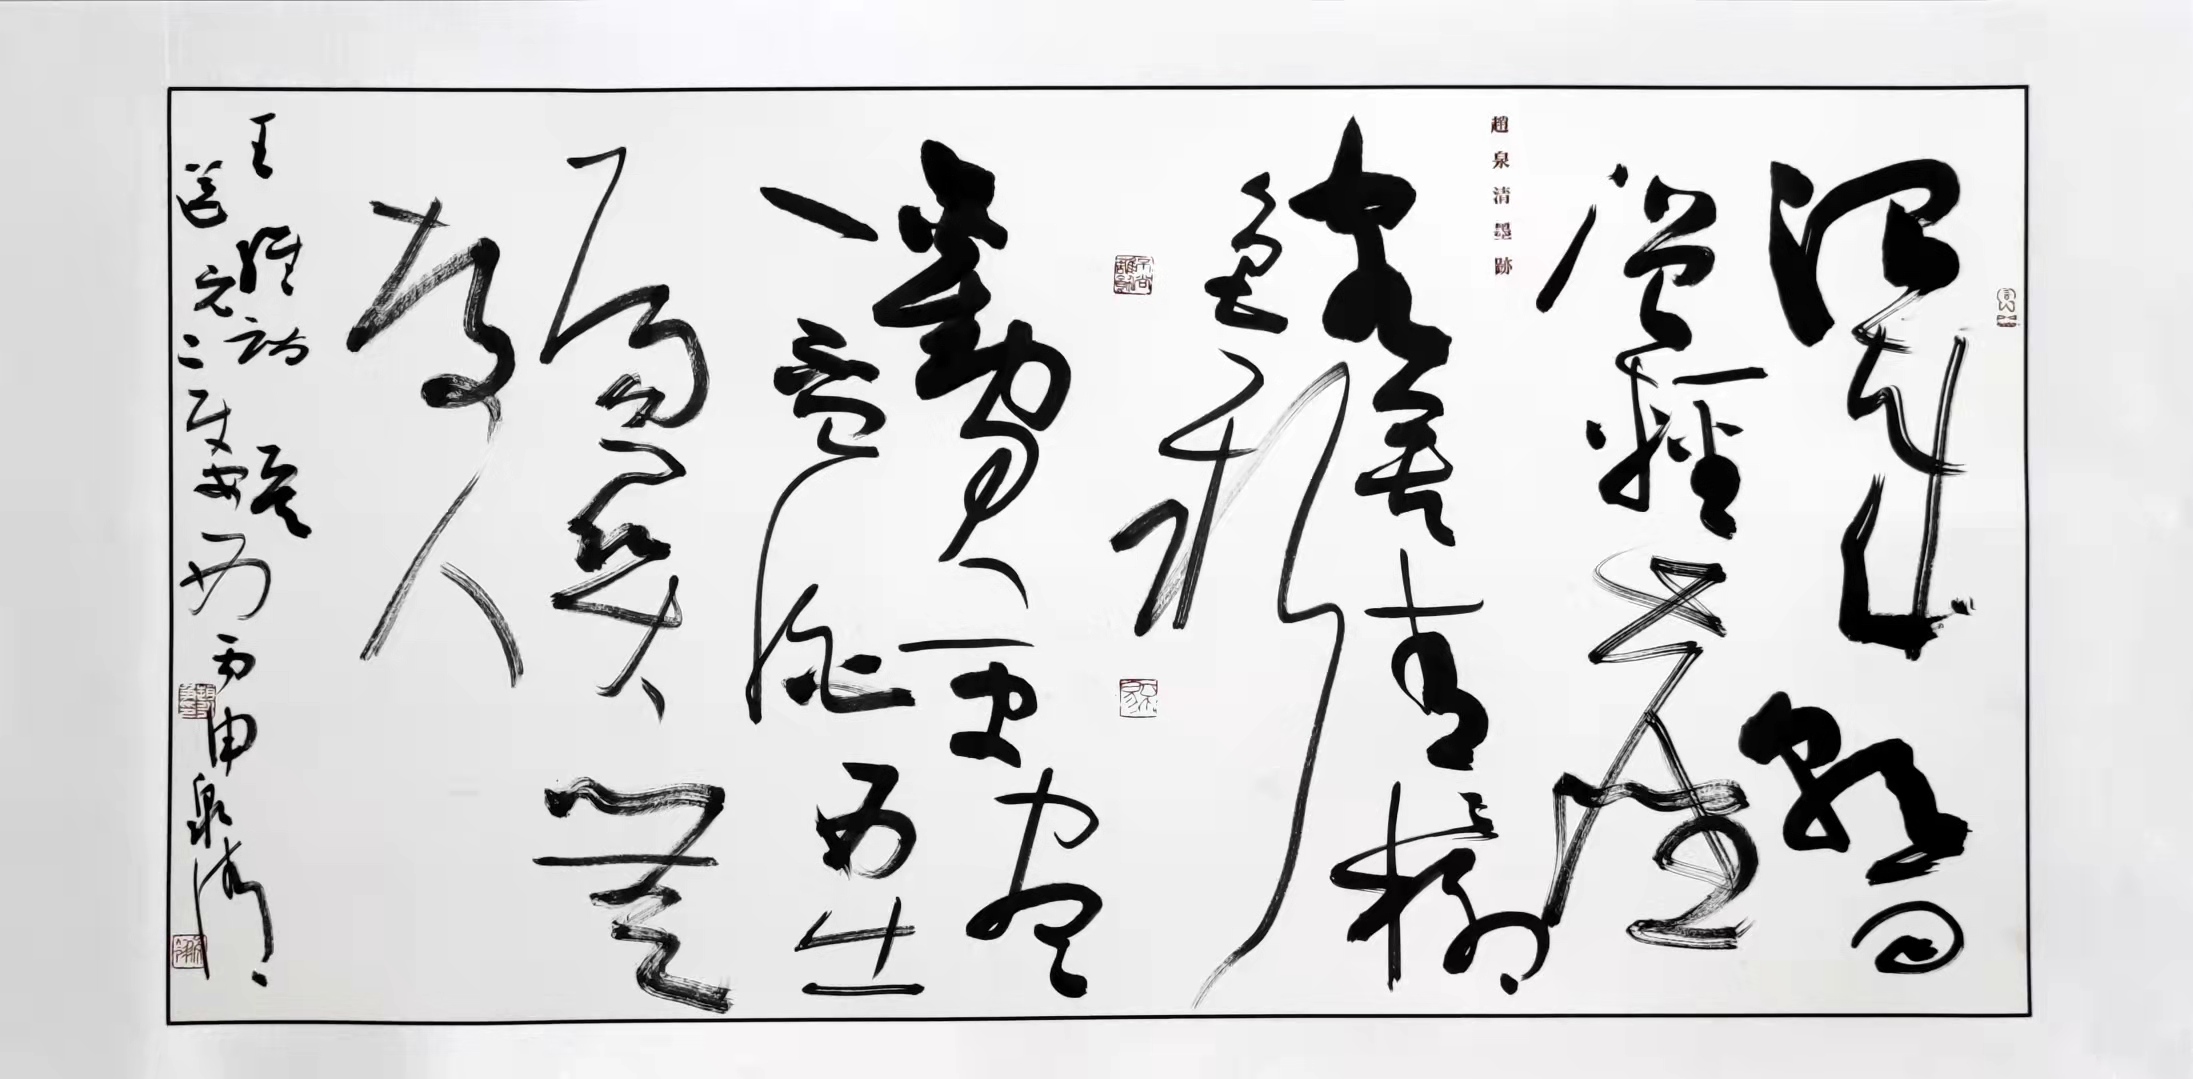 渭城朝雨
浥輕塵
趙泉清墨跡
客舍青青柳
色新
勸君更盡
一杯酒西出
陽關無
故人
王維詩
送元二使安西丙申泉清